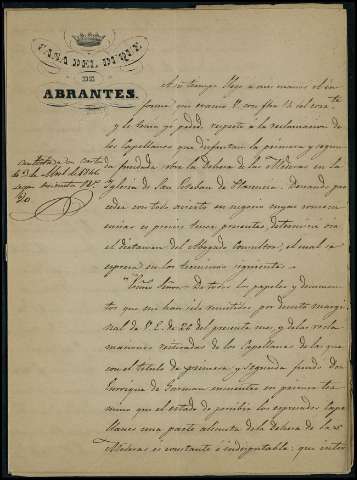 CASA DEL DUQUE
DE
ABRANTES.
A su tiempo llegó a mis manos el in
forme que evacuó V. con fha 13 del corr.te
y le tenia yo pedido respecto a la reclamacion de
los Capellanes que disfrutan la primera y segun
da fundada sobre la Dehesa de las Moheras en la
Iglesia de San Esteban de Plasencia. Deseando pro
ceder con todo acierto en negocio cuyas consecu
encias es preciso tener presentes, determiné oir
el dictamen del Abogado Consultor; el cual se
espresa en los terminos siguientes.
"Exmo Señor = De todos los papeles y documen
tos que me han sido remitidos, por decreto margi
nal de V. E. de 26 del presente mes, y de las recla
maciones reiteradas de los Capellanes de las que
con el titulo de primera y segunda fundó don
Enrique de Guzman
en primer ter
mino que el estado de percibir los espresados Cape
llanes una parte alicuota de la dehesa de las
Moheras es constante é indisputable: que entre
contestada en carta
de 3 de Abril de 1846
segun minuta nº
20